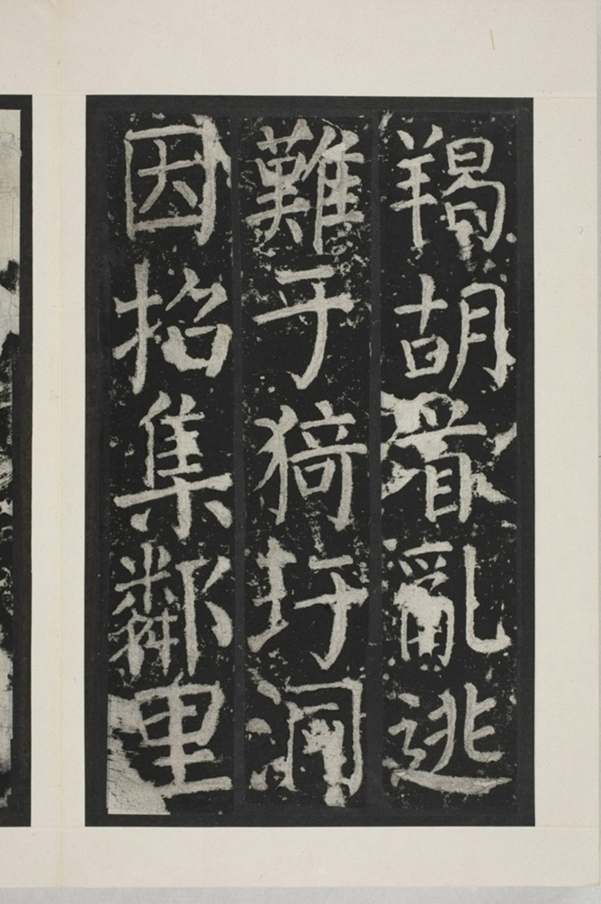 羯胡首亂逃
難于猗玗洞
因招集鄰里